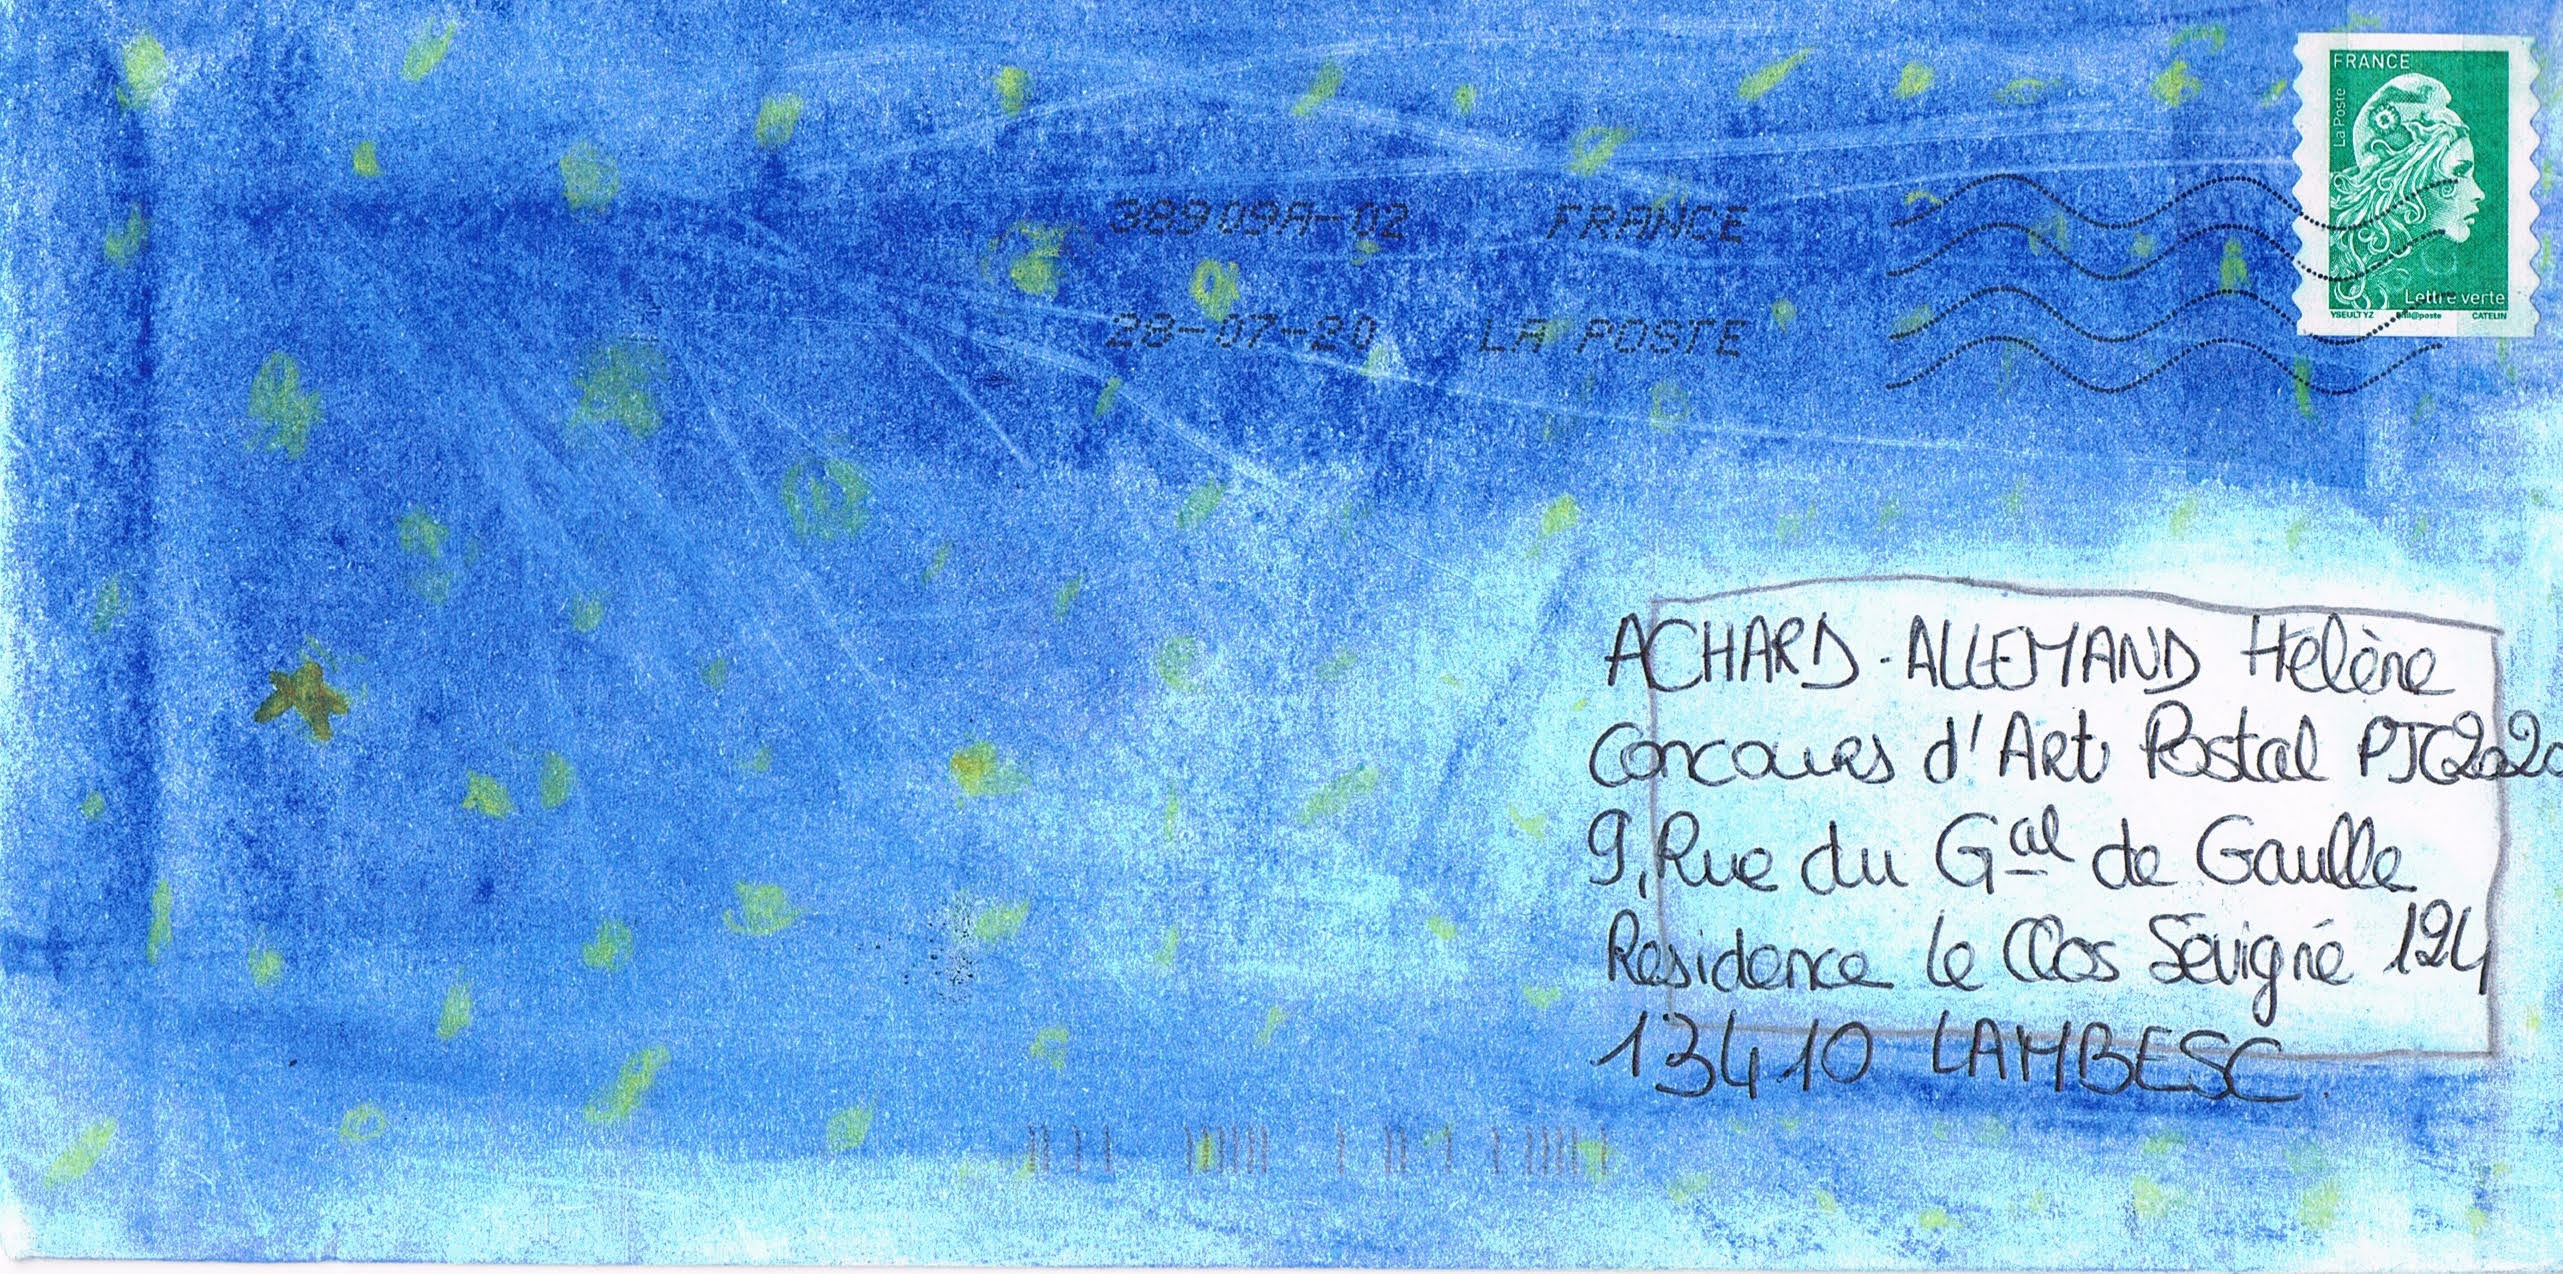 FRANCE
La Poste
Lettre verte
YSEULT YZ phil@poste CATELIN
38909A-02 FRANCE
28-07-20 LA POSTE
ACHARD-ALLEMAND Hélène
Concours d'Art Postal PJC2020
9, Rue du Gal de Gaulle
Résidence le Clos Sévigné 124
13410 LAMBESC.